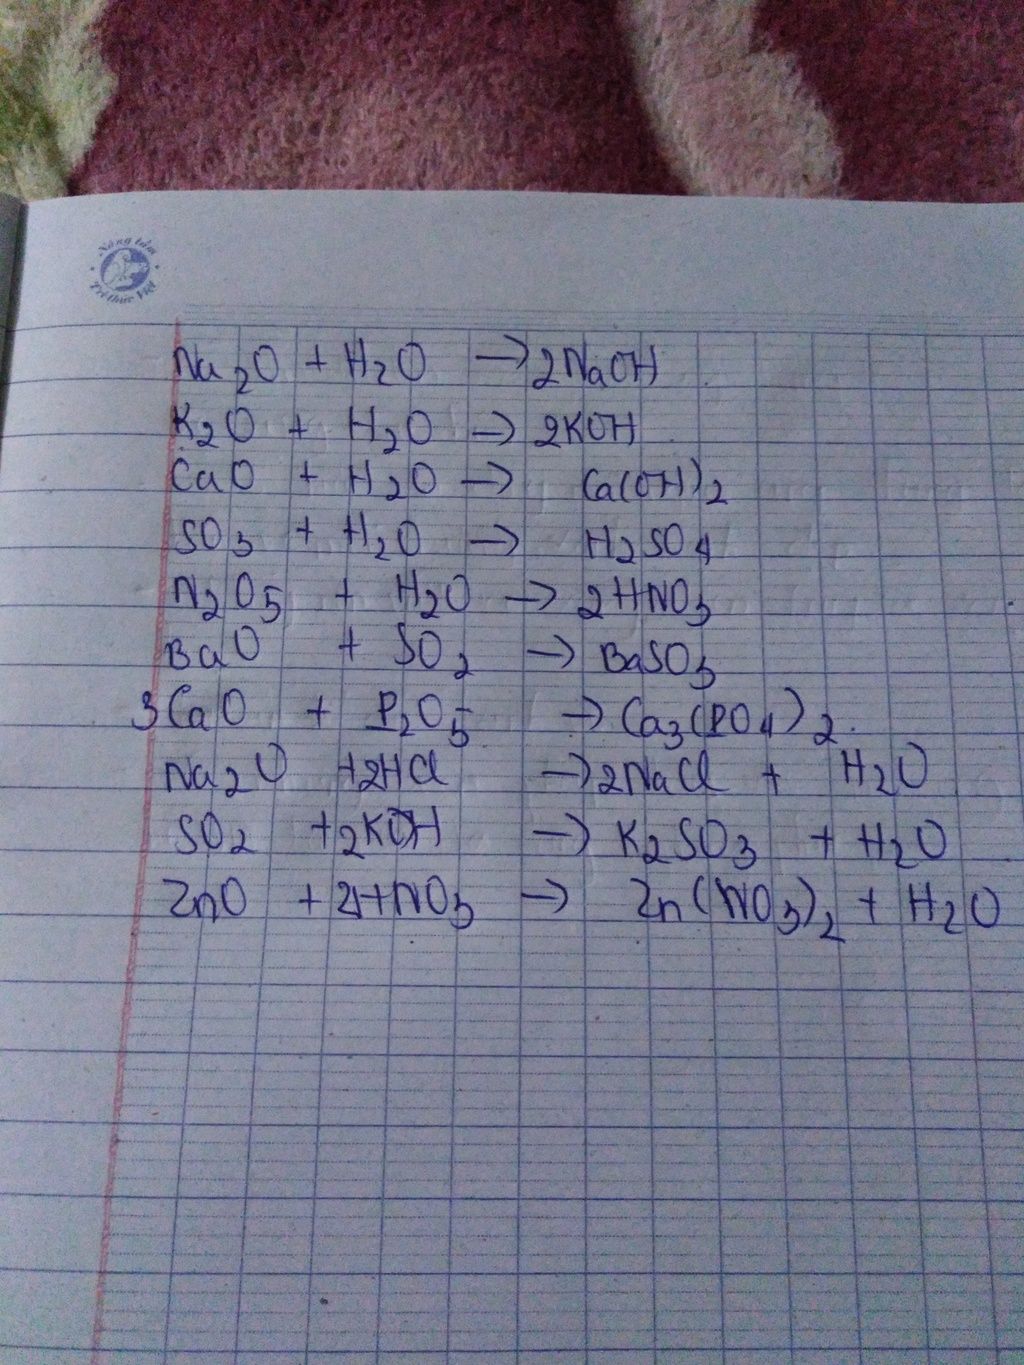 Nâng tầm
Tri thức Việt
Na2O + H2O → 2NaOH
K2O + H2O → 2KOH
CaO + H2O → Ca(OH)2
SO3 + H2O → H2SO4
N2O5 + H2O → 2HNO3
BaO + SO2 → BaSO3
3CaO + P2O5 → Ca3(PO4)2.
Na2O +2HCl → 2NaCl + H2O
SO2 +2KOH → K2SO3 + H2O
ZnO + 2HNO3 → Zn(NO3)2 + H2O